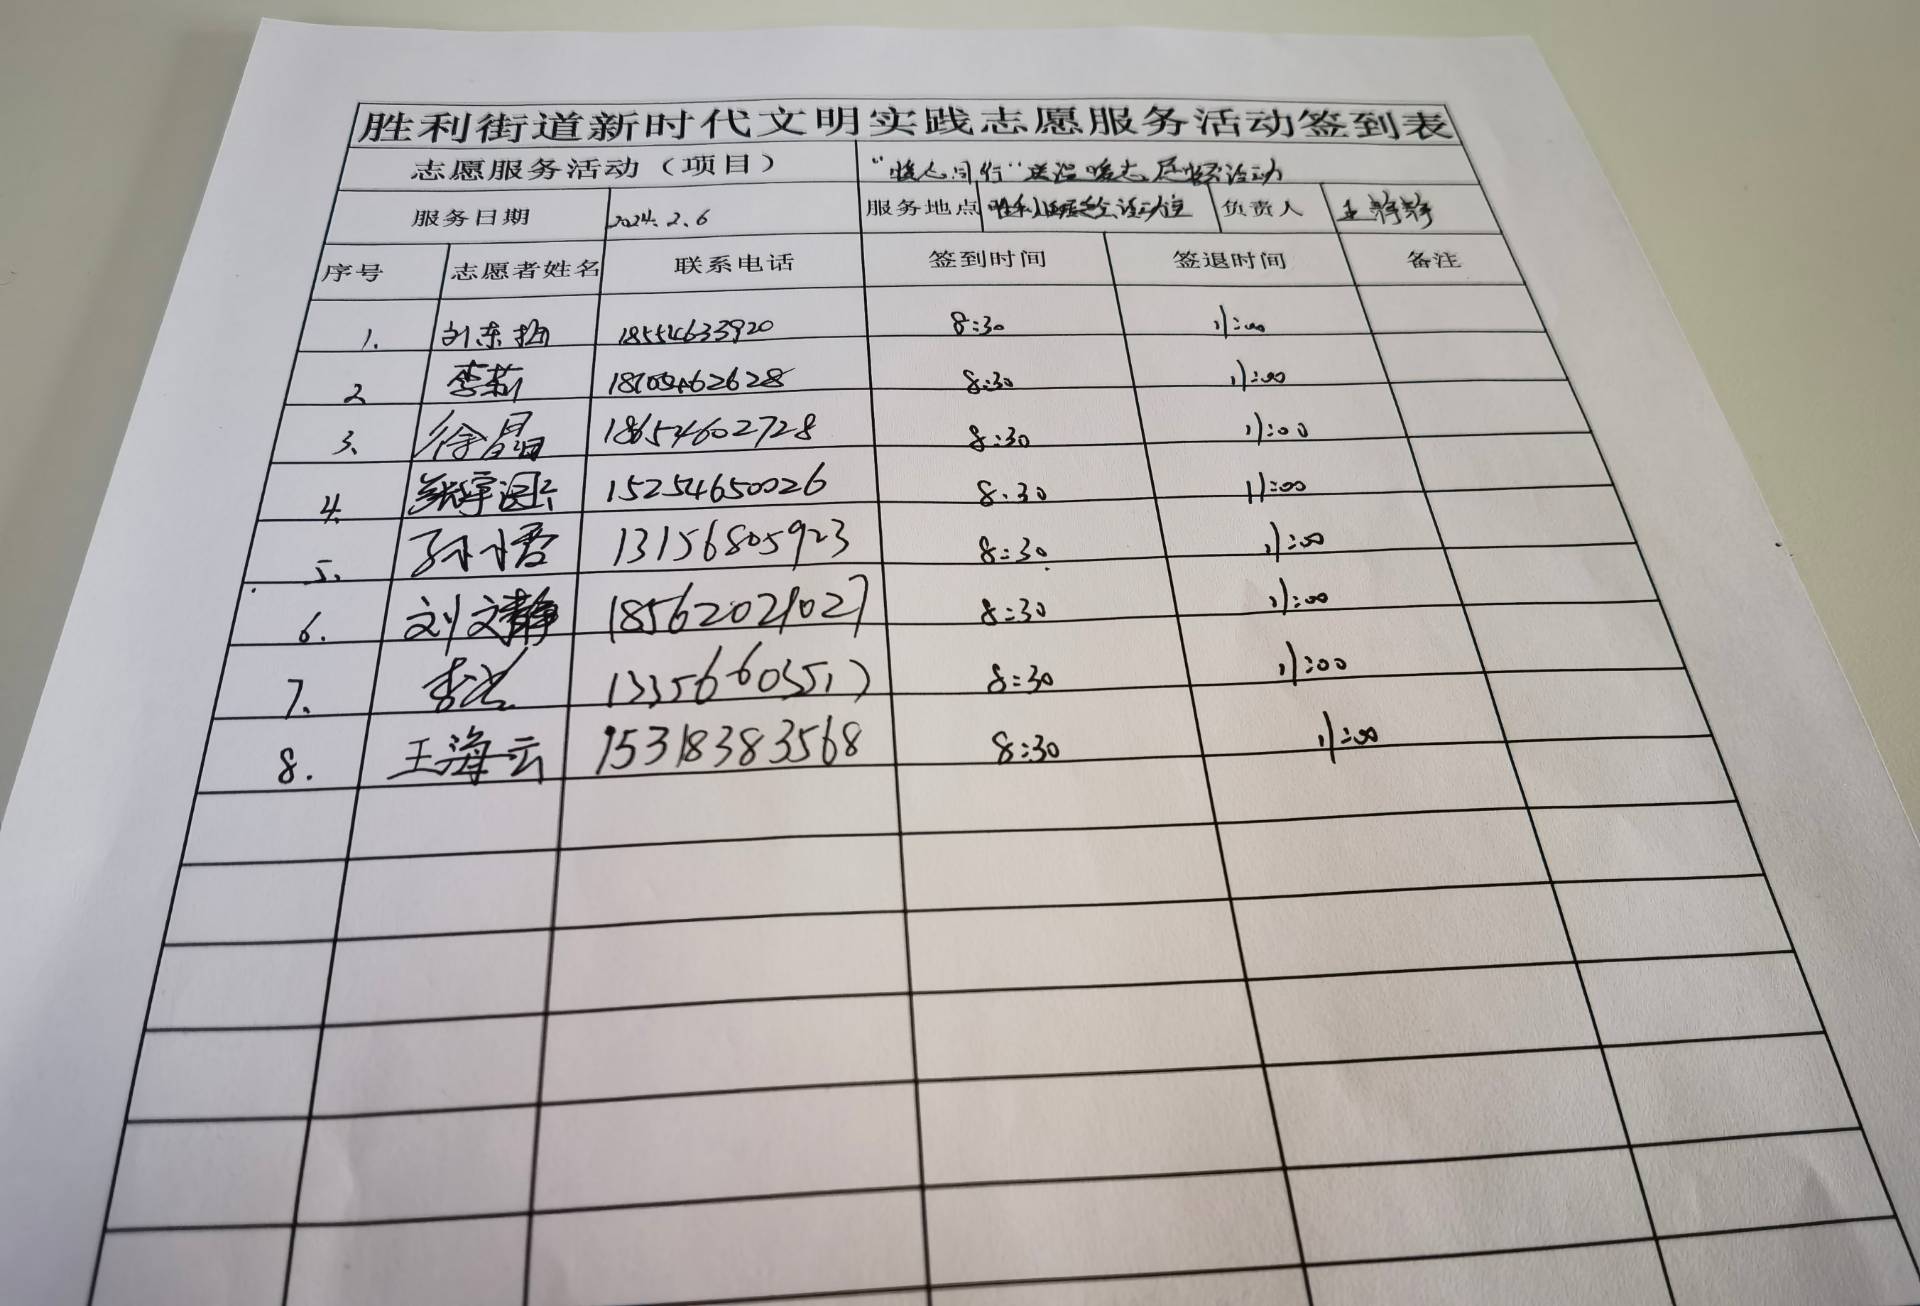 胜利街道新时代文明实践志愿服务活动签到表
志愿服务活动（项目） 活动
服务日期 2024.2.6 服务地点 负责人 王静静
序号 志愿者姓名 联系电话 签到时间 签退时间 备注
1. 刘东梅 18554633920 8:30 11:00
2 李莉 8:30 11:00
3. 徐晶 18654602728 8:30 11:00
4. 15254650026 8:30 11:00
5. 孙小惜 13156805923 8:30 11:00
6. 刘文静 18562021027 8:30 11:00
7. 13356603517 8:30 11:00
8. 王海云 15318383568 8:30 11:00